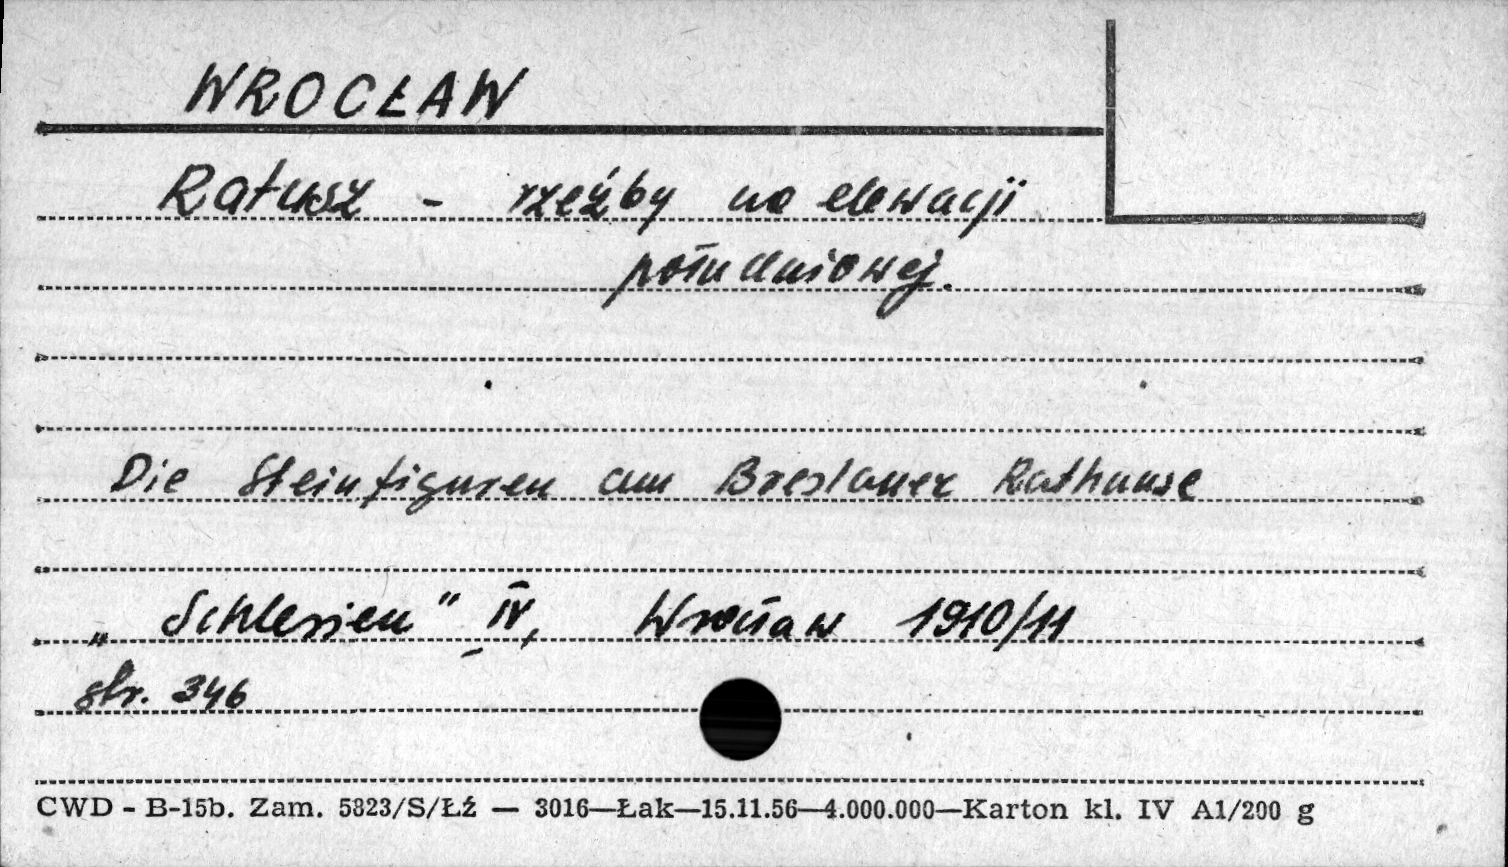 WROCŁAW
Ratusz - rzeźby na elewacji
południowej.
Die Steinfiguren am Breslauer Rathause
„Schlesien" IV, Wrocław 1910/11
str. 346
CWD - B-15b. Zam. 5823/S/Łź — 3016—Łak—15.11.56—4.000.000—Karton kl. IV A1/200 g